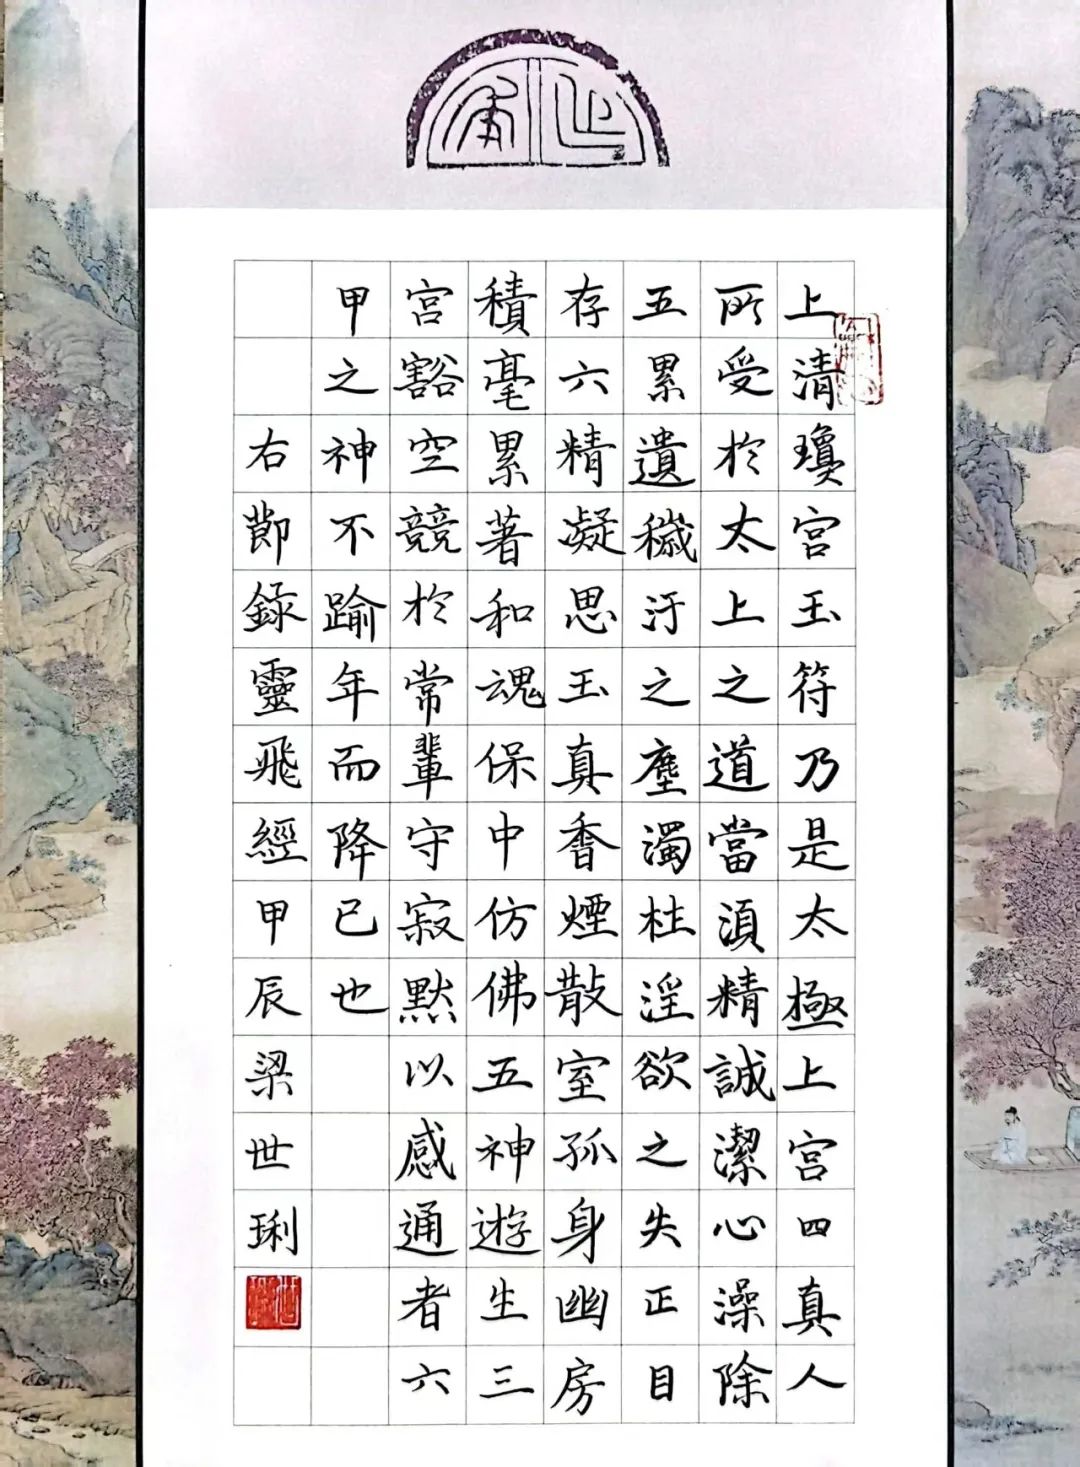 上清瓊宮玉符乃是太極上宮四真人
所受於太上之道當湏精誠潔心澡除
五累遺穢汙之塵濁杜淫欲之失正目
存六精凝思玉真香煙散室孤身幽房
積毫累著和魂保中仿佛五神遊生三
宮豁空競於常輩守寂默以感通者六
甲之神不踰年而降已也
右節錄靈飛經甲辰梁世琍